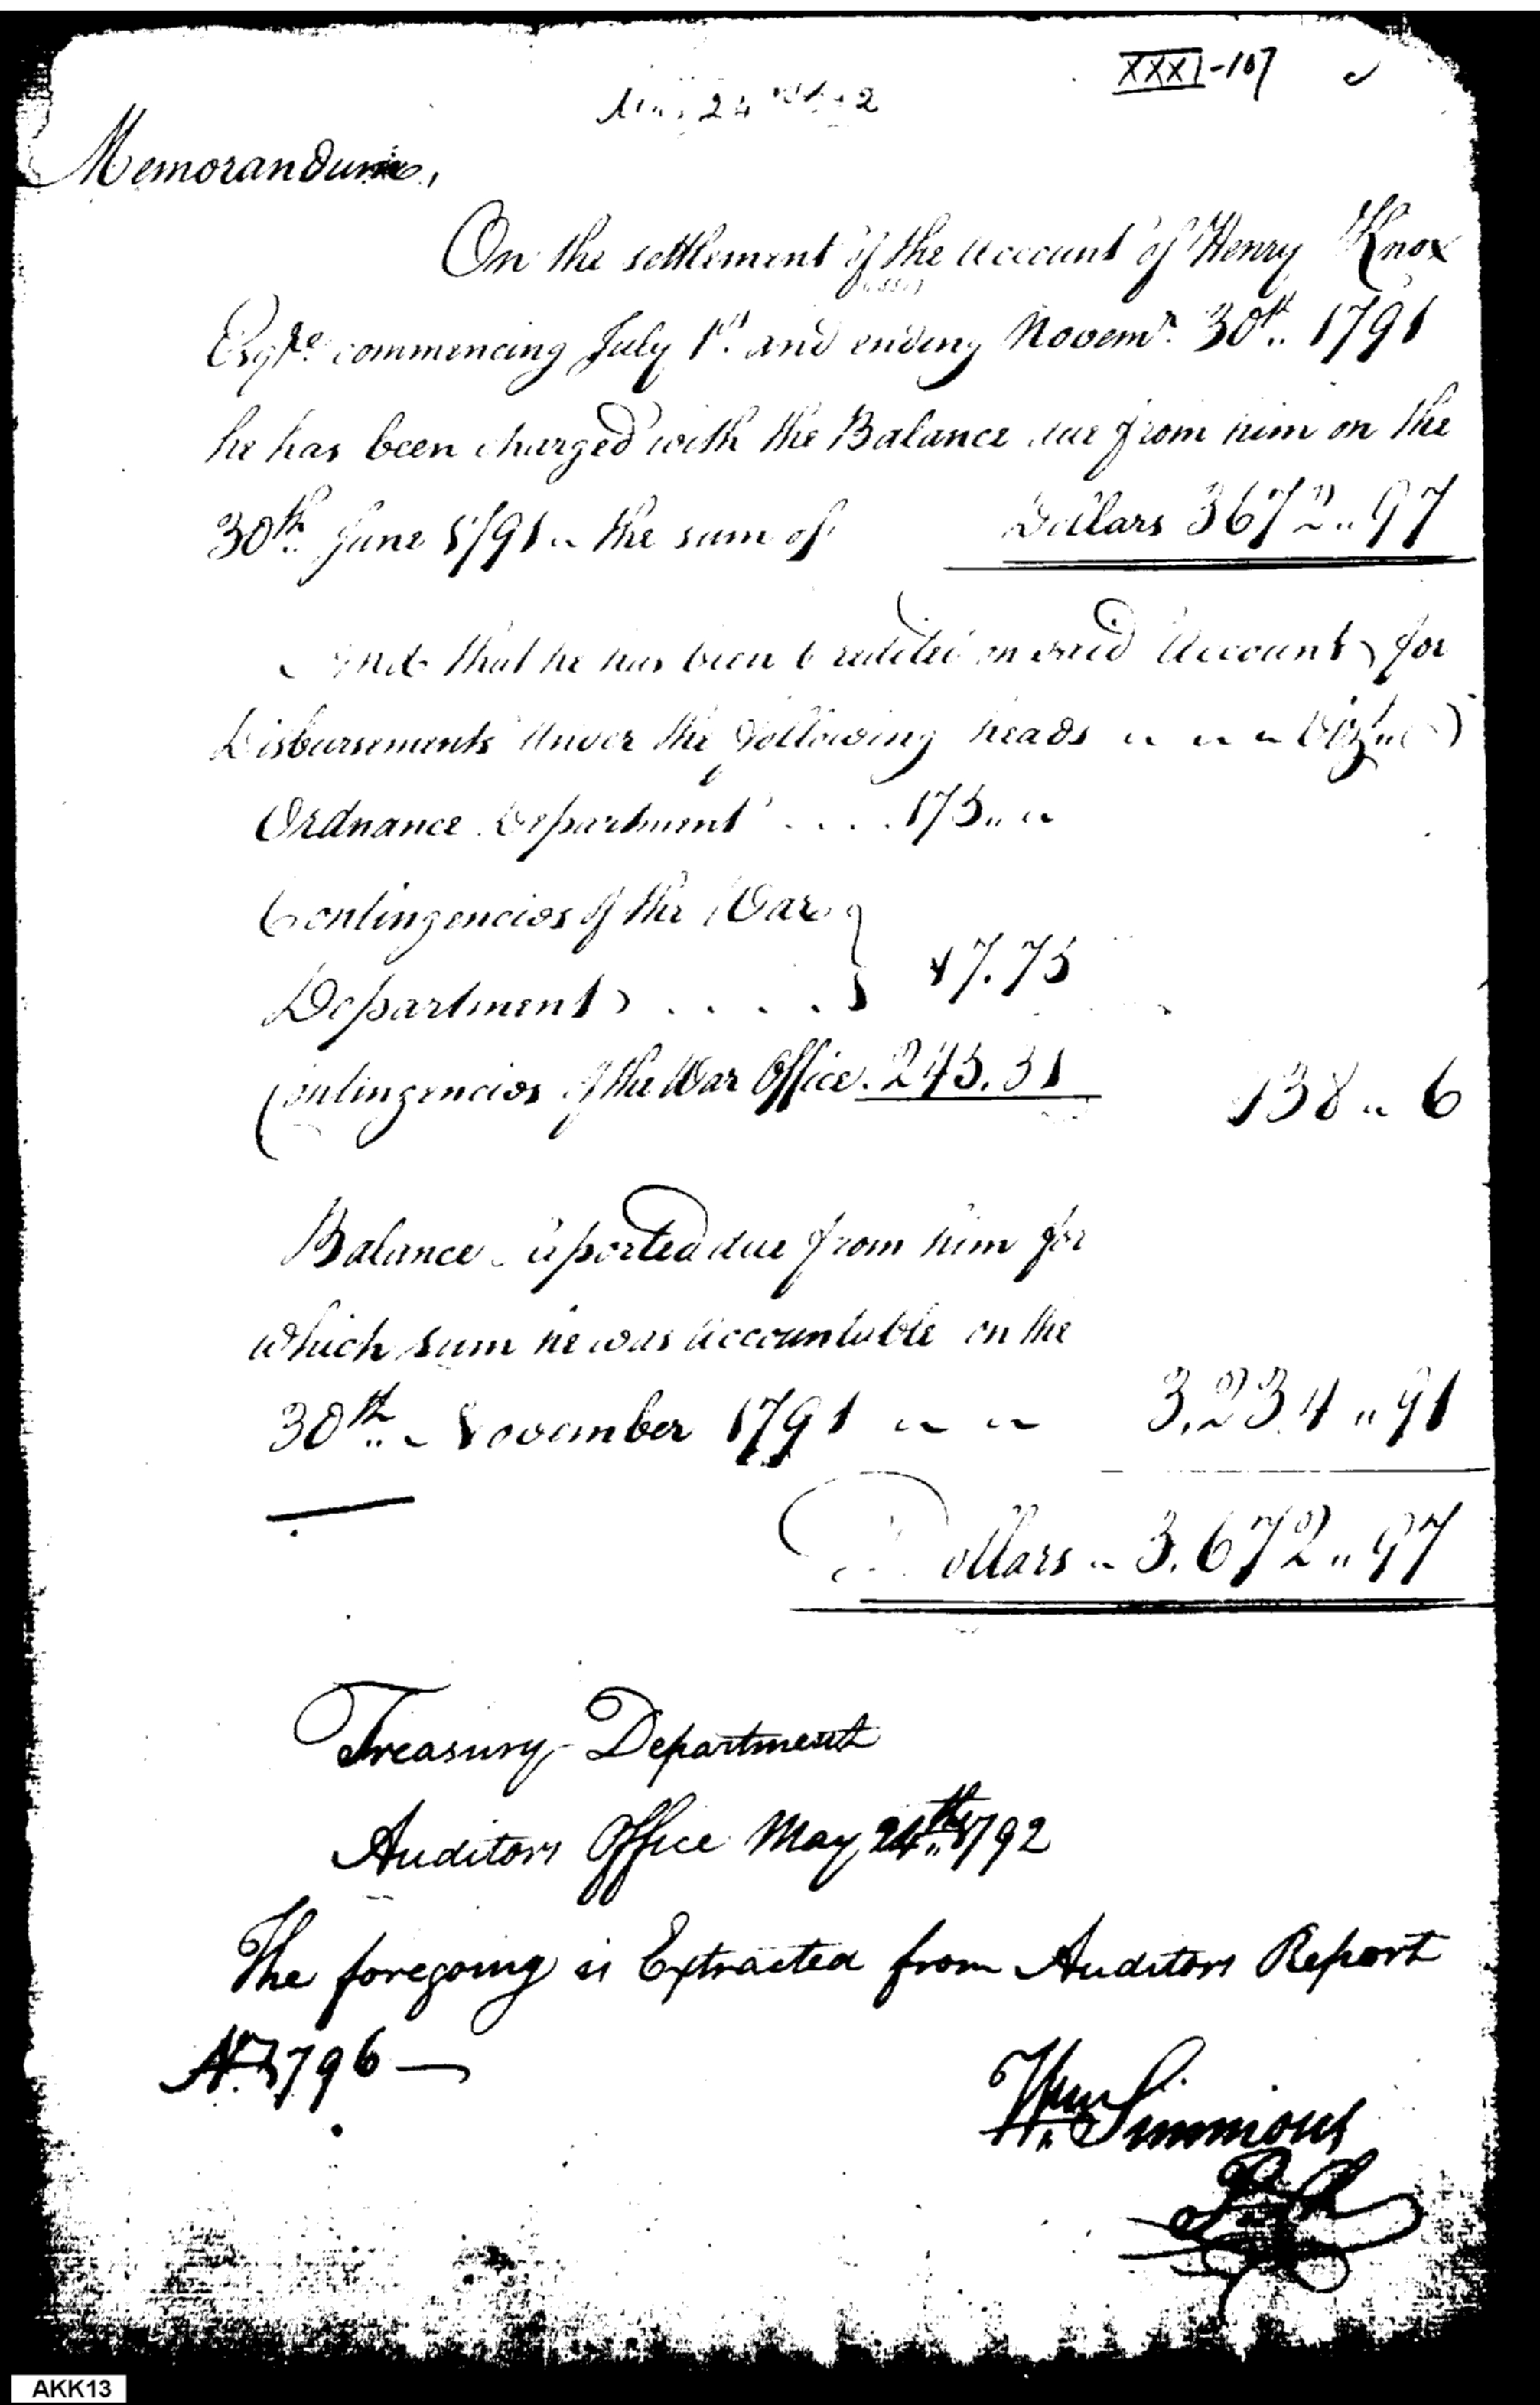 XXXI-107
May 24
Memorandum,
On the settlement of the Account of Henry Knox
Esqre. commencing July 1st. and ending Novemr. 30th.. 1791
he has been charged with the Balance due from him on the
30th.. June 1791 .. the sum of Dollars 3672 .. 97
And that he has been Credited on said Account for
Disbursements under the following heads .. .. .. Vizt ..
Ordnance Department . . . . 175 .. ..
Contingencies of the War }
Department . . . . } 17.75
Contingencies of the War Office . 245.31 438 .. 6
Balance reported due from him for
which sum he was accountable on the
30th.. November 1791 .. .. 3,234 .. 91
Dollars .. 3,672 .. 97
Treasury Department
Auditors Office May 24th.. 1792
The foregoing is Extracted from Auditors Report
No. 1796 —
Wm. Simmons
AKK13